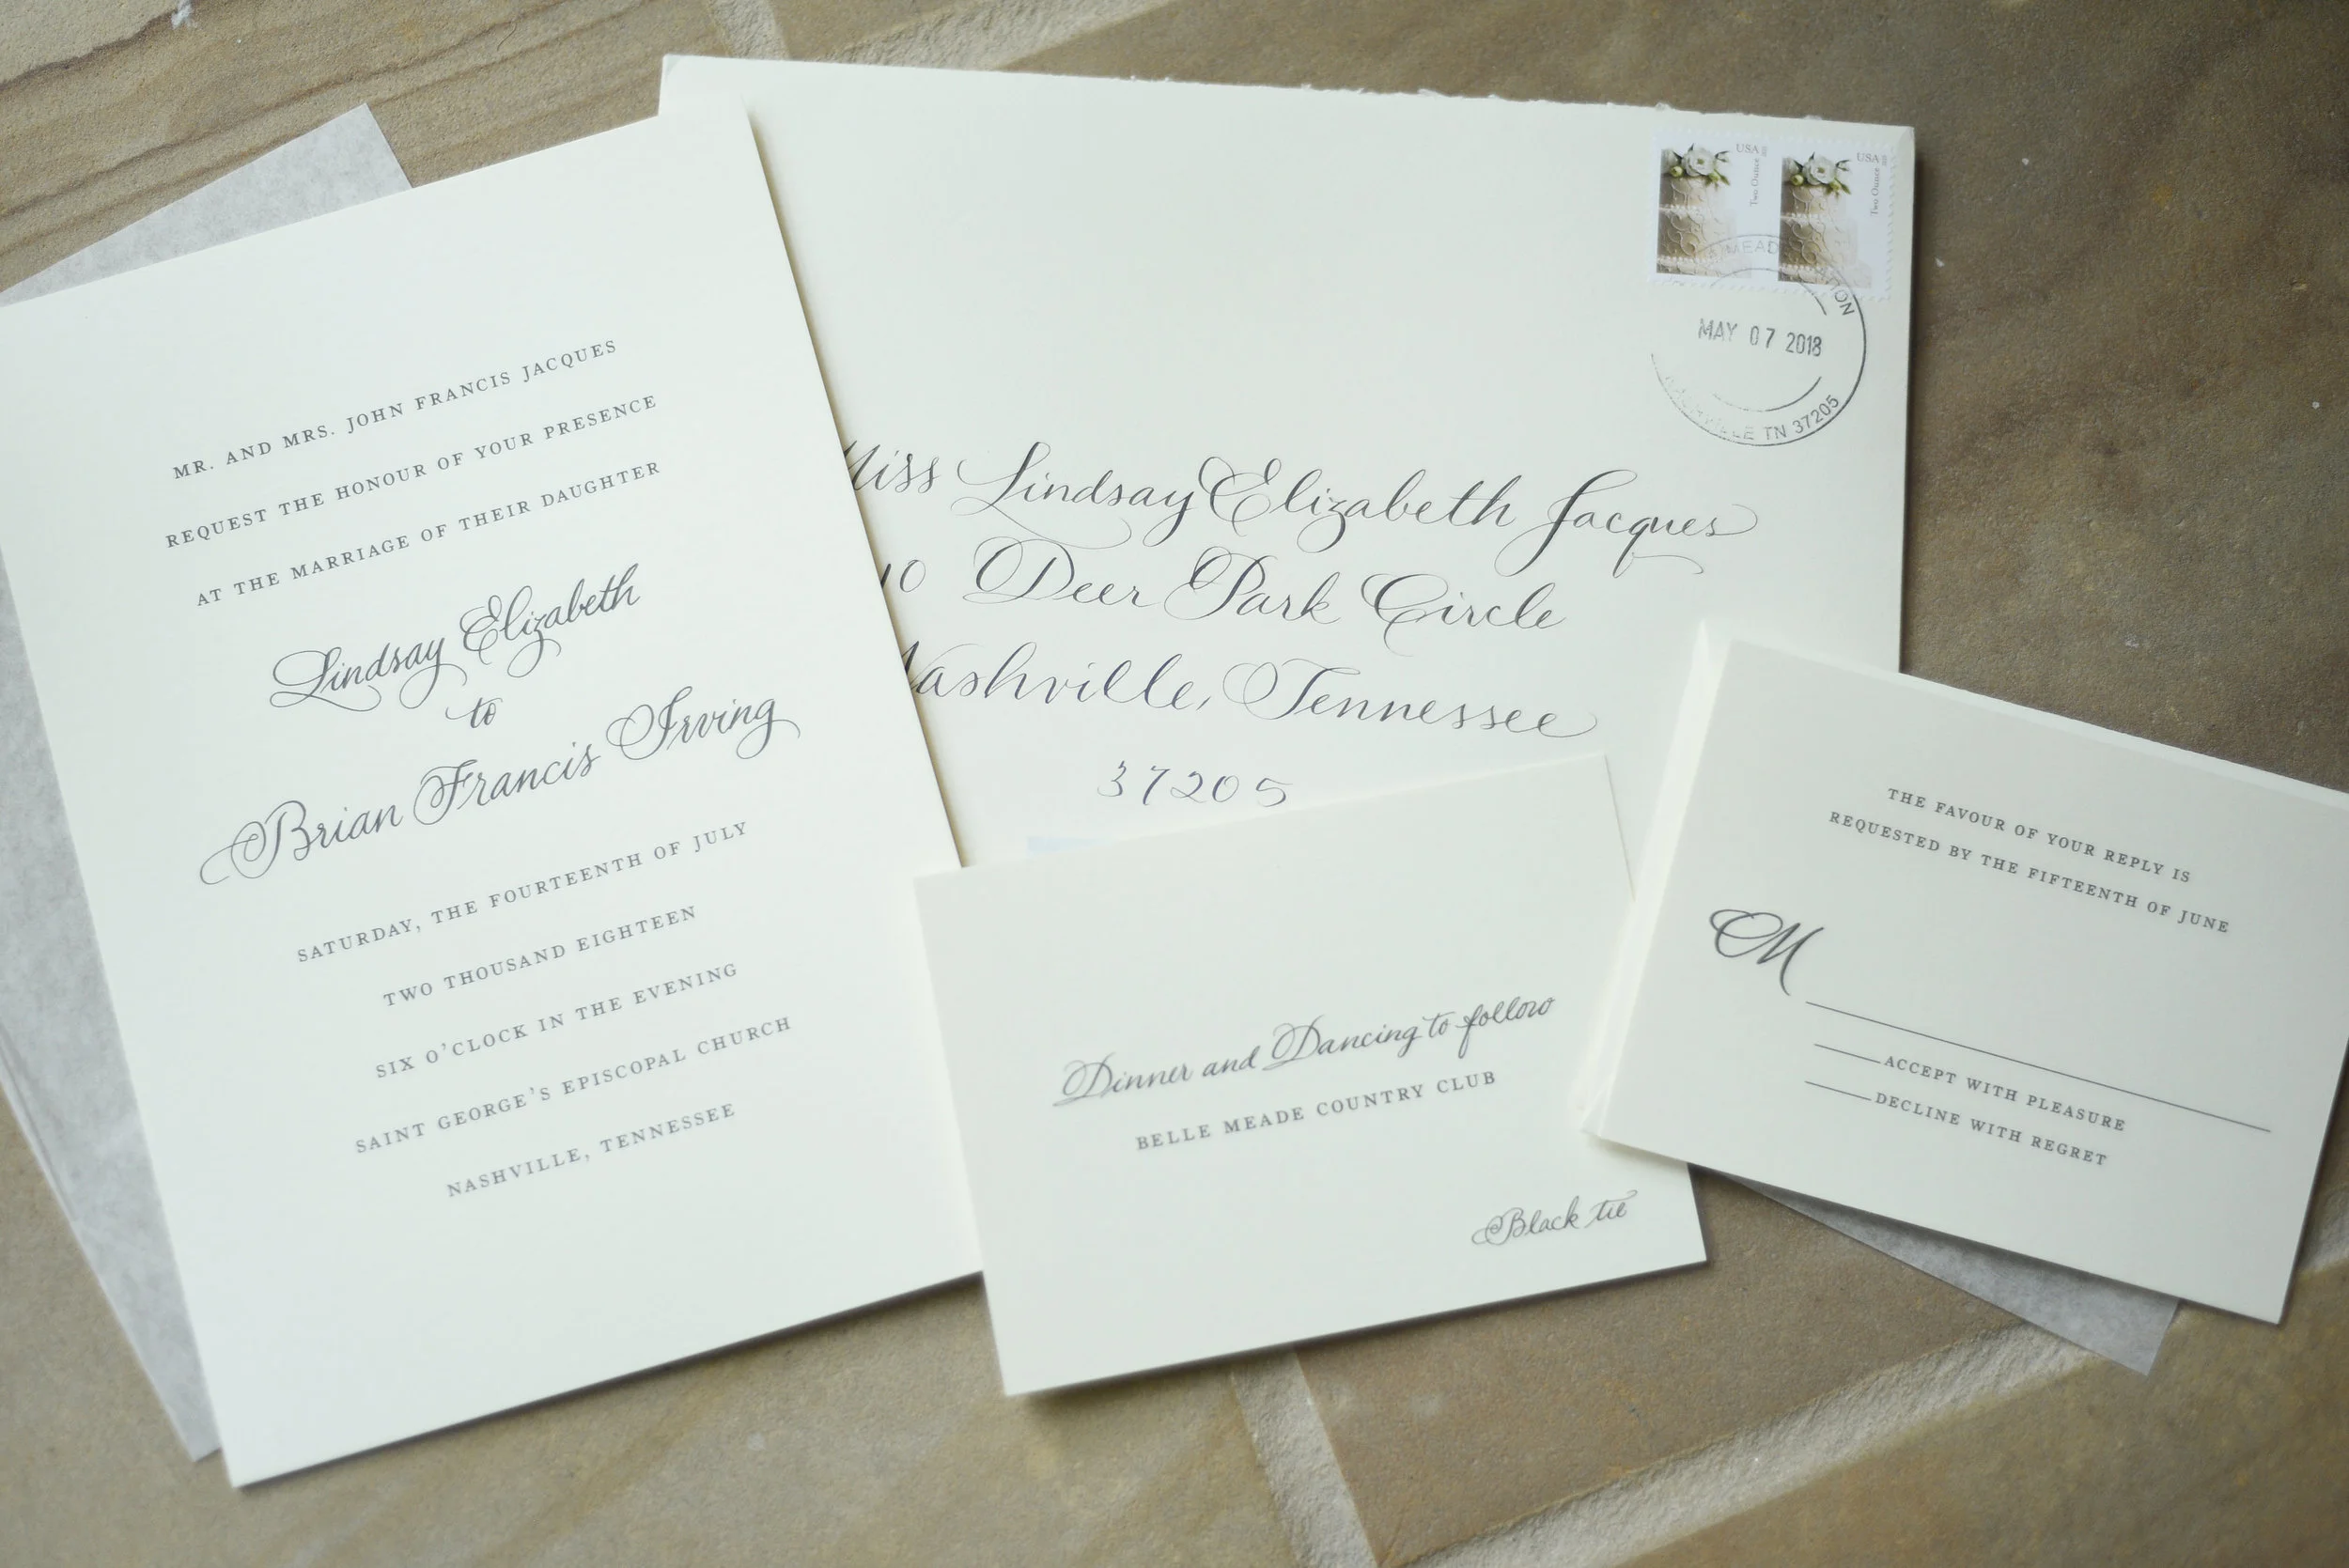 MR. AND MRS. JOHN FRANCIS JACQUES
REQUEST THE HONOUR OF YOUR PRESENCE
AT THE MARRIAGE OF THEIR DAUGHTER
Lindsay Elizabeth
to
Brian Francis Irving
SATURDAY, THE FOURTEENTH OF JULY
TWO THOUSAND EIGHTEEN
SIX O'CLOCK IN THE EVENING
SAINT GEORGE'S EPISCOPAL CHURCH
NASHVILLE, TENNESSEE
USA
Two Ounce
USA
Two Ounce
MAY 07 2018
TN 37205
Miss Lindsay Elizabeth Jacques
Deer Park Circle
Nashville, Tennessee
37205
Dinner and Dancing to follow
BELLE MEADE COUNTRY CLUB
Black tie
THE FAVOUR OF YOUR REPLY IS
REQUESTED BY THE FIFTEENTH OF JUNE
M
ACCEPT WITH PLEASURE
DECLINE WITH REGRET